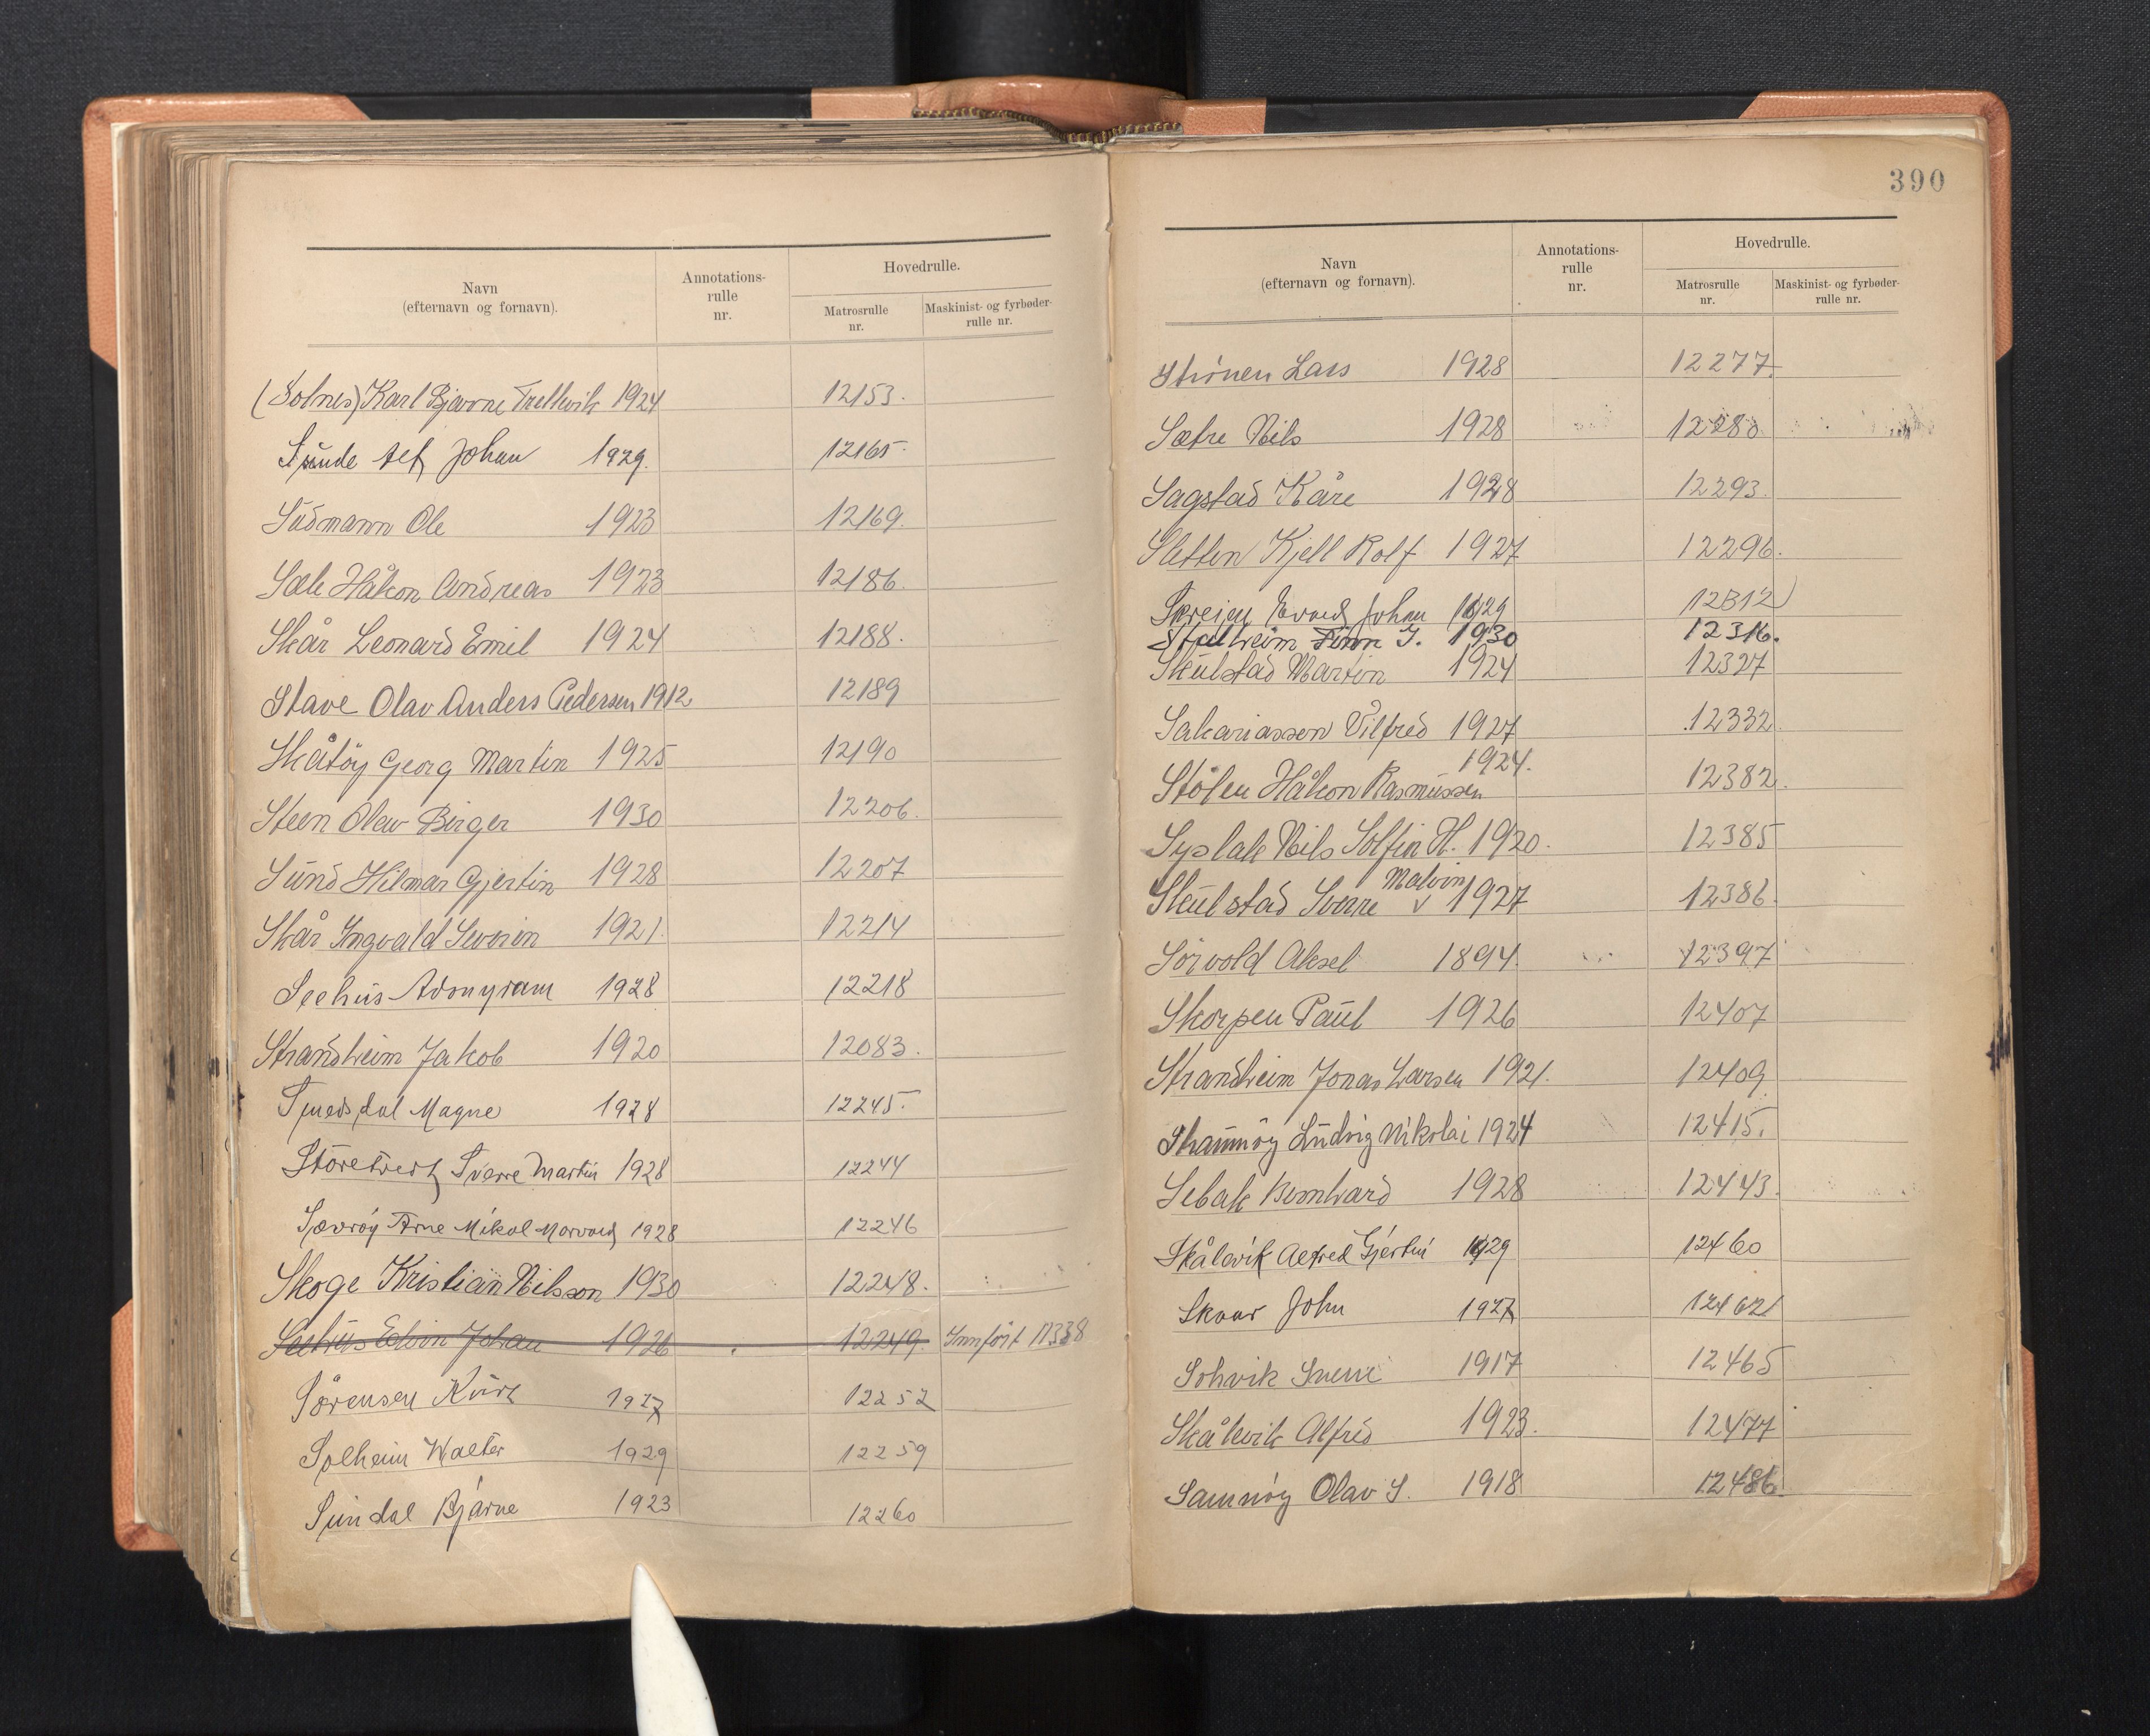 Navn
(efternavn og fornavn).
Annotations-
rulle
nr.
Hovedrulle.
Matrosrulle
nr.
Maskinist- og fyrbøder-
rulle nr.
(Solnes) Karl Bjarne Trellevik 1924 12153.
Sunde Alf Johan 1929. 12165.
Südmann Ole 1923 12169.
Sæle Håkon Andreas 1923 12186.
Skår Leonard Emil 1924 12188.
Stave Olav Anders Pedersen 1912 12189
Skåtøy Georg Martin 1925 12190
Steen Olav Birger 1930 12206.
Sund Hilmar Gjertin 1928 12207
Skår Yngvald Severin 1921. 12214
Seehus Adonyram 1928 12218
Strandheim Jakob 1920 12083.
Smedsdal Magne 1928 12245.
Storetvedt Sverre Martin 1928 12244
Sævrøy Arne Mikal 1928 12246
Skoge Kristian Nilsson 1930 12248.
Seehus Edvin Johan 1926 12249. Innført 11338
Sørensen Kurt 1927 12252
Solheim Walter 1929 12259
Sundal Bjarne 1923 12260
390
Navn
(efternavn og fornavn).
Annotations-
rulle
nr.
Hovedrulle.
Matrosrulle
nr.
Maskinist- og fyrbøder-
rulle nr.
Strönen Lars 1928 12277.
Sætre Nils 1928 12280
Sagstad Kåre 1928 12293.
Sletten Kjell Rolf 1927 12296.
Skreien Johan 1929 12312
Stalheim Finn I. 1930 12316.
Skulstad Martin 1924 12327
Sakariassen Vilfred 1927 12332.
1924.
Stölen Håkon Rasmussen 12382.
Syslak Nils Solfin H. 1920. 12385
Malvin
Skulstad Sverre v 1927 12386.
Sörvold Aksel 1894. 12397
Skorpen Paul 1926 12407
Strandheim Jonas Larsen 1921. 12409
Ludvig Nikolai 1924 12415.
Sebak Bernhard 1928 12443.
Skålevik Alfred Gjertin 1929 12460
Skaar John 1927 12462
Solvik Sverre 1917 12465
Skålevik Alfred 1923. 12477
Samnøy Olav S. 1918 12486.